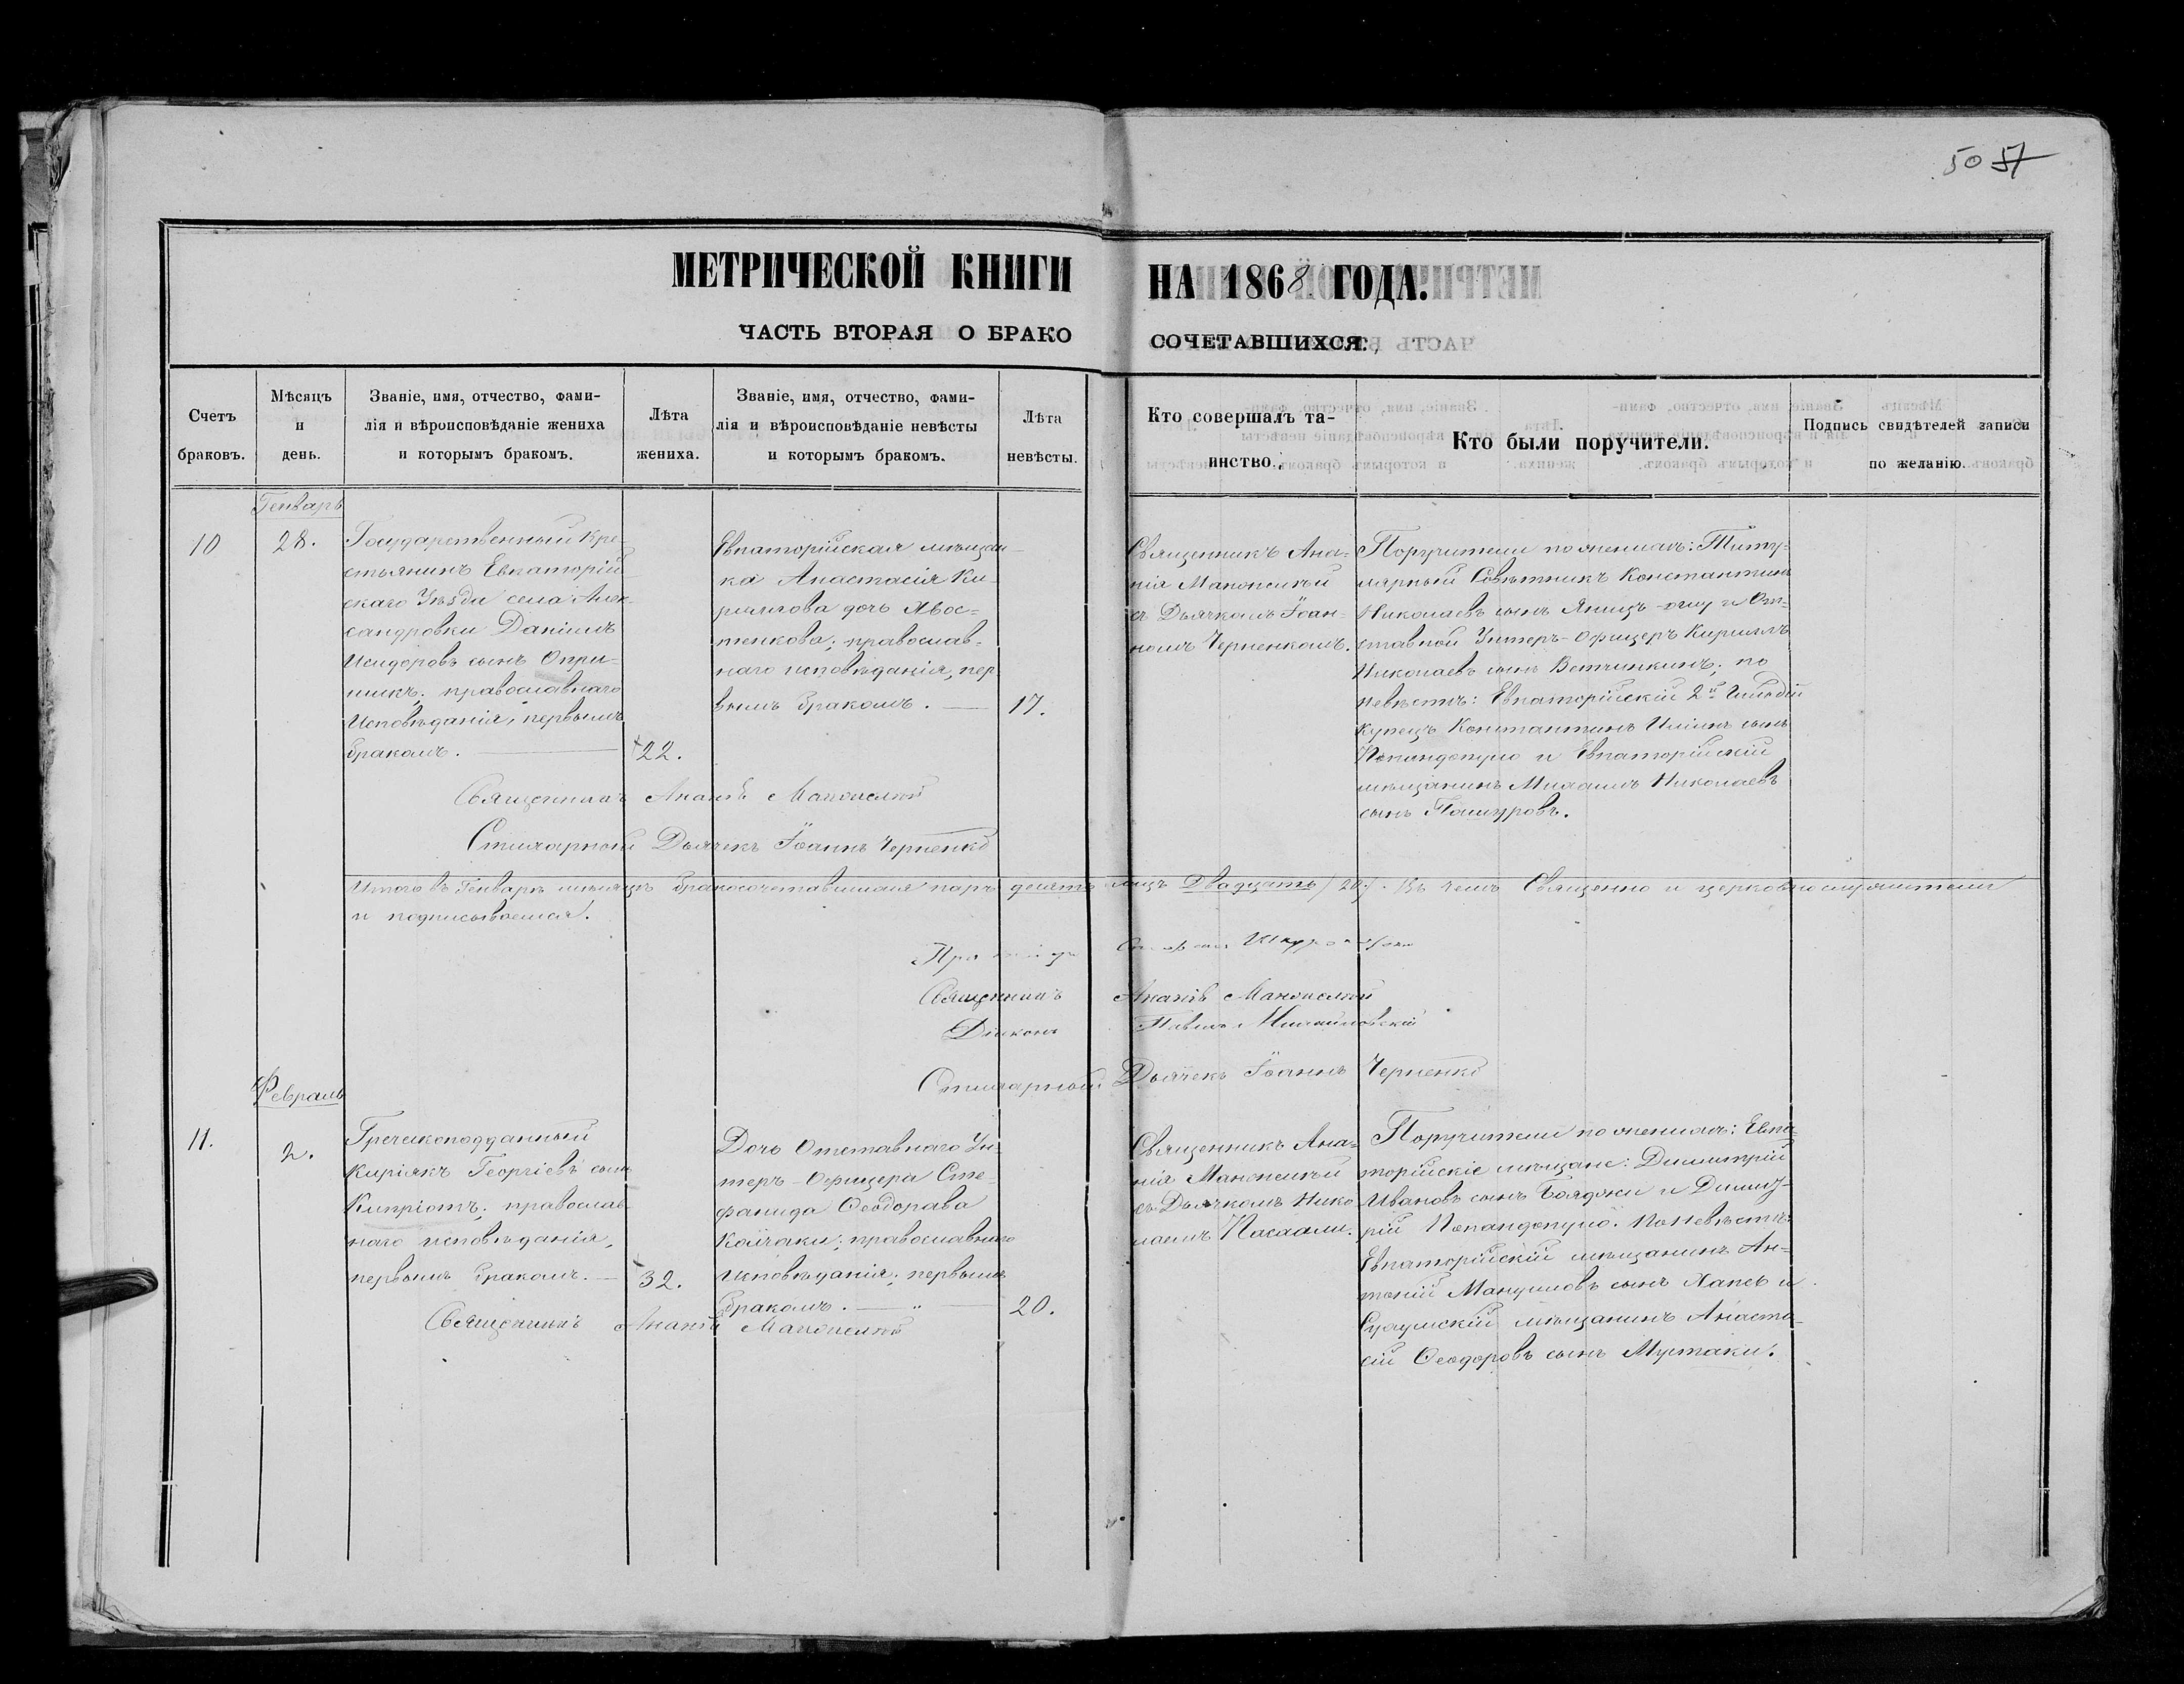 50 57
МЕТРИЧЕСКОЙ КНИГИ НА 1868 ГОДА.
ЧАСТЬ ВТОРАЯ О БРАКОСОЧЕТАВШИХСЯ.
Счетъ
браковъ.
Мѣсяцъ
и
день.
Званіе, имя, отчество, фами-
лія и вѣроисповѣданіе жениха
и которымъ бракомъ.
Лѣта
жениха.
Званіе, имя, отчество, фами-
лія и вѣроисповѣданіе невѣсты
и которымъ бракомъ.
Лѣта
невѣсты.
Кто совершалъ та-
инство.
Кто были поручители.
Подпись свидѣтелей записи
по желанію.
Генварь
10
28.
Государственный кре-
стьянинъ Евпаторій-
скаго Уѣзда села Алек-
сандровки Даніилъ
Исидоровъ сынъ Опри-
шикъ; православнаго
Исповѣданія, первымъ
бракомъ.
22.
Евпаторійская мѣщан-
ка Анастасія Ки-
риллова дочь Хвос-
тенкова; православ-
наго исповѣданія, пер-
вымъ бракомъ.
17.
Священникъ Ана-
нія
съ Дьячкомъ Іоан-
номъ Черненкомъ.
Поручители по женихѣ: Титу-
лярный Совѣтникъ Константинъ
Николаевъ сынъ и От-
ставной Унтеръ-Офицеръ Кириллъ
Николаевъ сынъ Ветчинкинъ; по
невѣстѣ: Евпаторійскій 2й Гильдіи
Купецъ Константинъ Ильинъ сынъ
Попандопуло и Евпаторійскій
мѣщанинъ Михаилъ Николаевъ
сынъ Пашуровъ.
Священникъ Ананій
Стихарный Дьячекъ Іоаннъ Черненко
Итого въ Генварѣ мѣсяцѣ бракосочетавшихся паръ десять лицъ Двадцать /20/. Въ чемъ Священно и церковнослужители
и подписываемся.
Священникъ Ананій
Діаконъ Павелъ Михайловскій
Стихарный Дьячекъ Іоаннъ Черненко
Февраль
11.
2.
Греческоподданный
Киріакъ Георгіевъ сынъ
Кипріотъ; православ-
наго исповѣданія,
первымъ бракомъ.
32.
Дочь Отставнаго Ун-
теръ-Офицера Сте-
фанида Ѳеодорова
Койчаки; православнаго
Исповѣданія; первымъ
бракомъ.
20.
Священникъ Ана-
нія
съ Дьячкомъ Нико-
лаемъ
Поручители по женихѣ: Евпа-
торійскіе мѣщане: Димитрій
Ивановъ сынъ Бояджи и Димит-
рій Попандопуло. По Невѣстѣ:
Евпаторійскій мѣщанинъ Ан-
тоній Мануиловъ сынъ и
мѣщанинъ Анаста-
сій Ѳеодоровъ сынъ Мустаки.
Священникъ Ананій